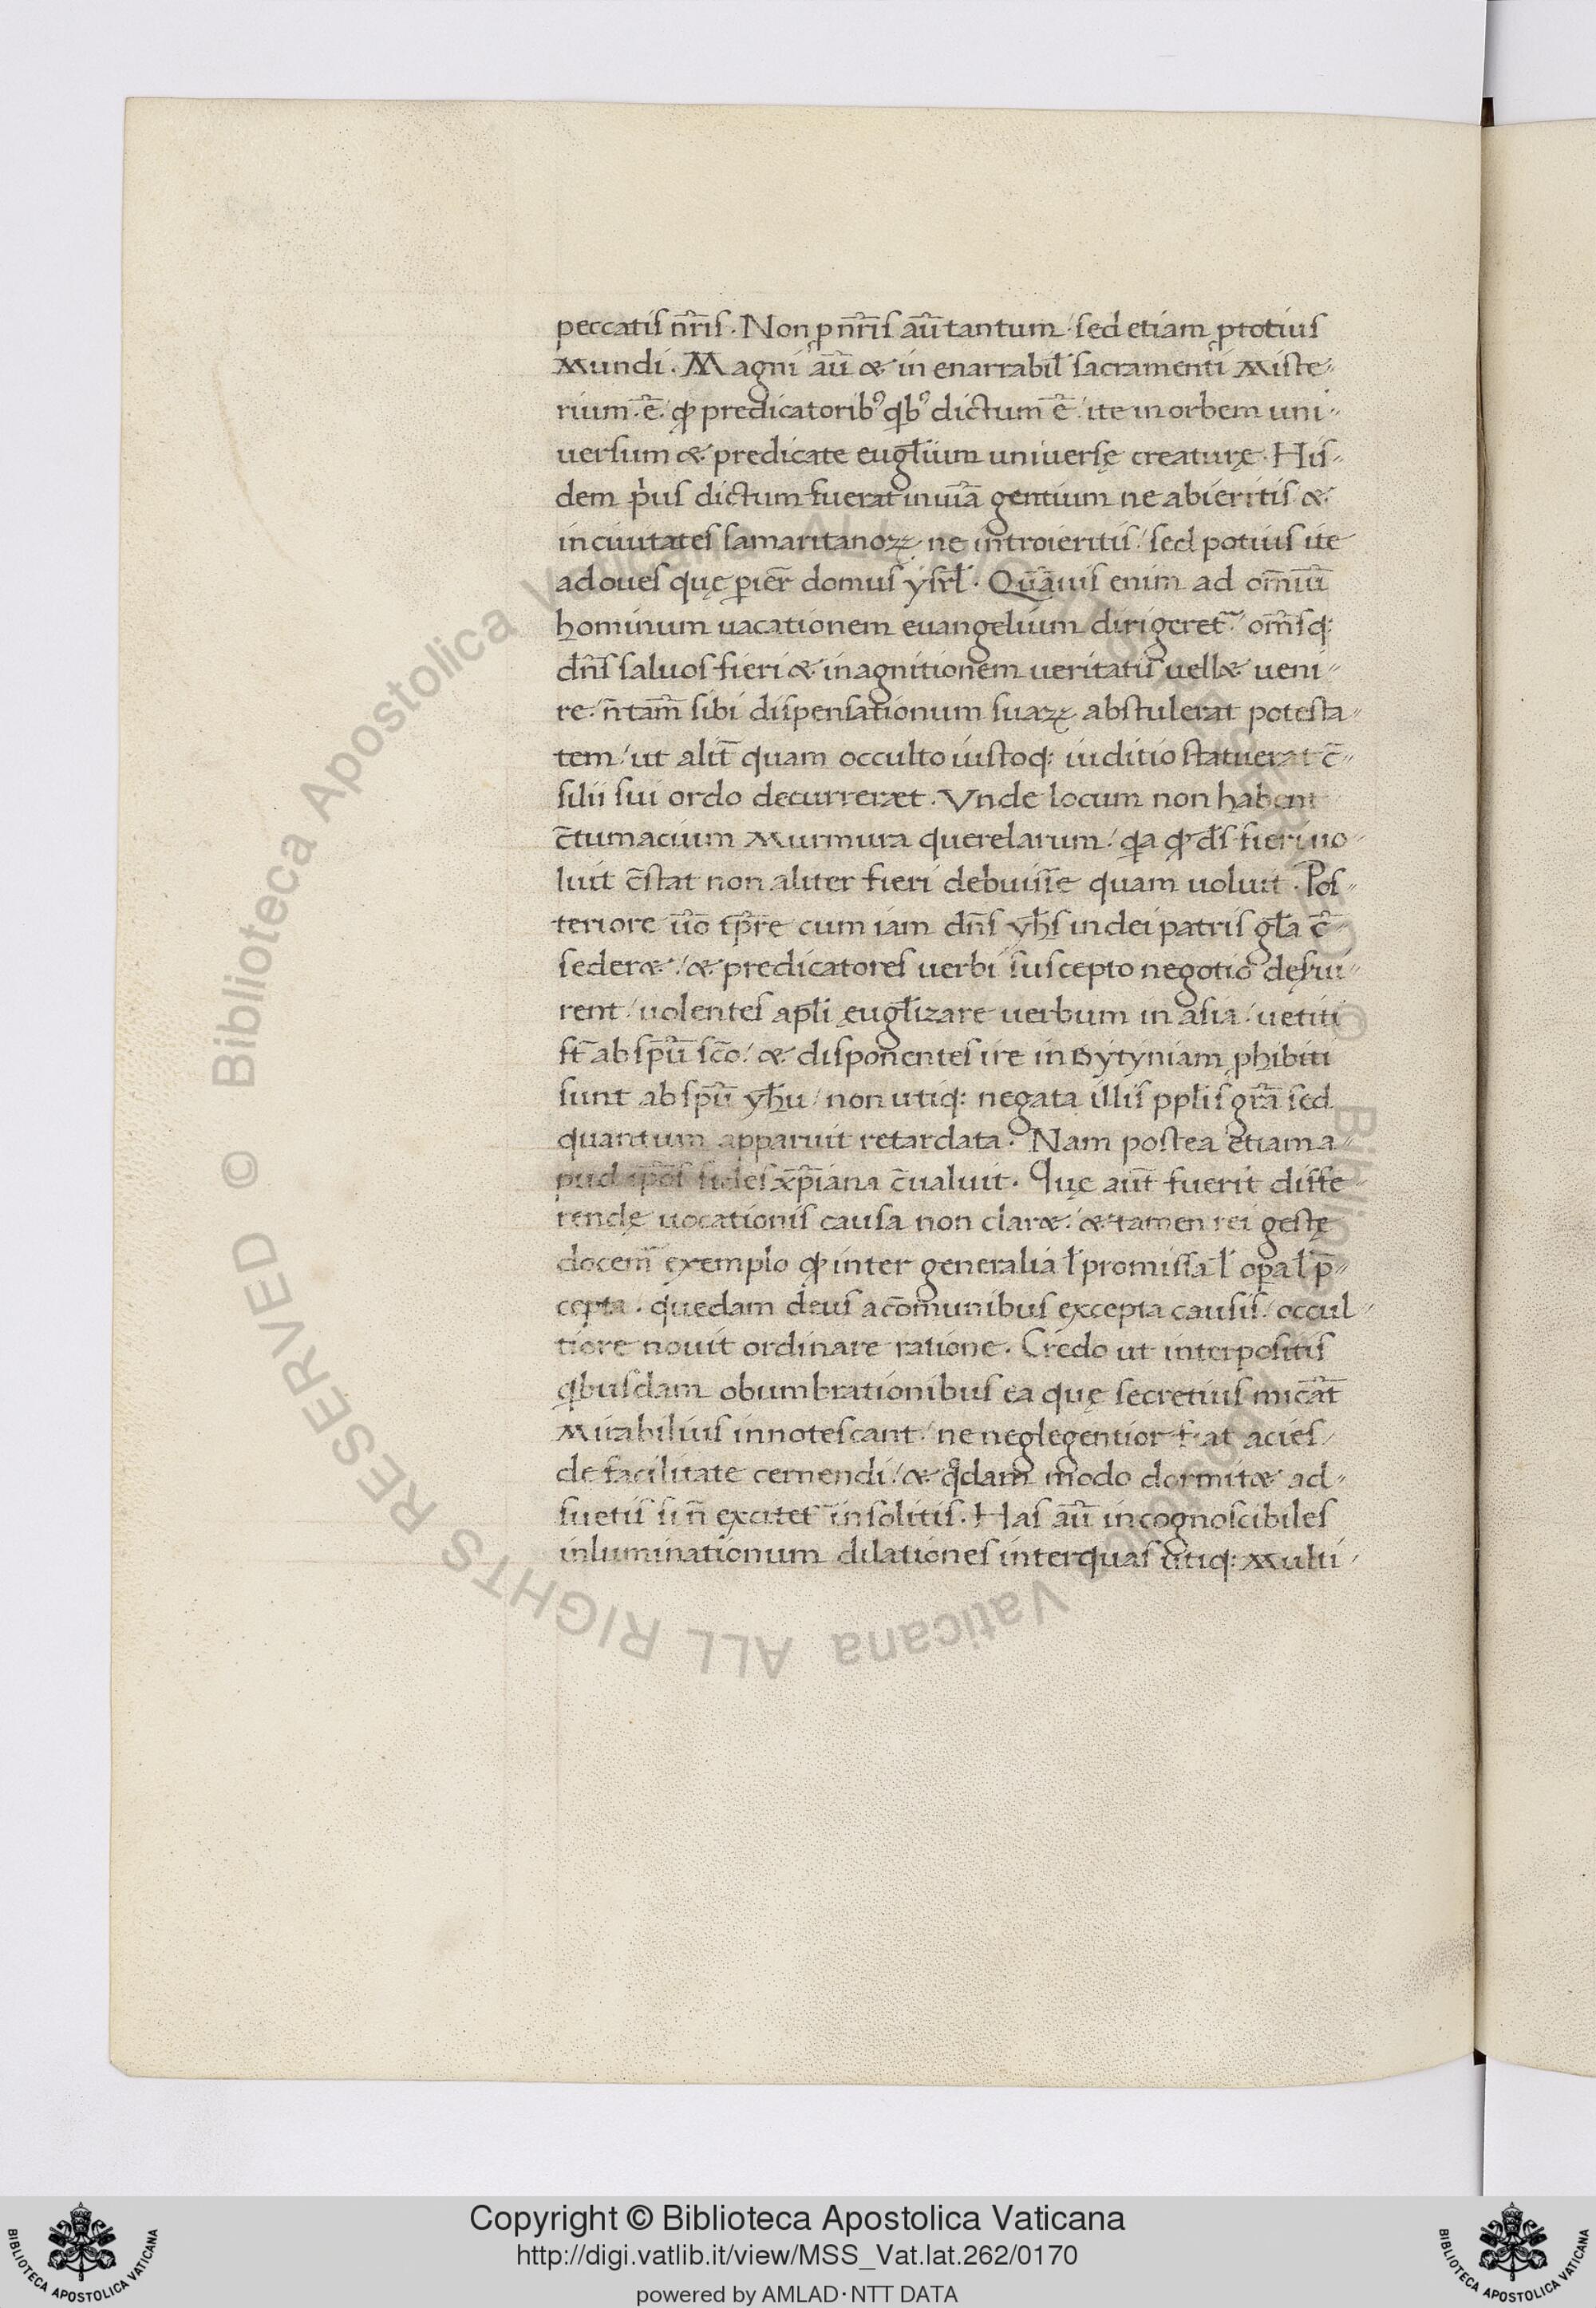 peccatis nr̄is. Non ꝓ nr̄is aū tantum / sed etiam ꝓ totius
mundi. Magni aū & in enarrabil̄ sacramenti miste-
rium. ē. ꝙ predicatorib᾽ qb᾽ dictum ē / ite in orbem uni-
uersum & predicate eugl̄ium uniuersę creaturę. His-
dem p̄us dictum fuerat in uiā gentium ne abieritis &
in ciuitates samaritanoꝝ ne introieritis / sed potius ite
ad oues quę ꝑier̄ domus ysrl̄. Quāuis enim ad omīū
hominum uacationem euangelium dirigeret᷑ / om̄sq:
dn̄s saluos fieri & in agnitionem ueritatis uell& ueni-
re. n̄ tam̄ sibi dispensationum suaꝝ abstulerat potesta-
tem / ut alit̄ quam occulto iustoq: iuditio statuerat c̄-
silii sui ordo decurreraet. Vnde locum non habent
c̄tumacium murmura querelarum / qa ꝙ ds̄ fieri uo-
luit c̄stat non aliter fieri debuiss̄e quam uoluit. Pos-
teriore ūo tp̄re cum iam dn̄s yh̄s in dei patris gl̄a c̄-
seder& / & predicatores uerbi suscepto negotio deserui-
rent / uolentes apl̄i ęugl̄izare uerbum in asia / uetiti
st̄ ab sp̄ū sc̄o / & disponentes ire in bytyniam ꝓhibiti
sunt ab sp̄ū yh̄u / non utiq: negata illis ppl̄is gr̄a sed
quantum apparuit retardata. Nam postea etiam a-
pud ip̄os fides xp̄iana c̄ualuit. Quę aut̄ fuerit diffe-
rendę uocationis causa non clar& / & tamen rei gestę
docem᷑ exemplo ꝙ inter generalia l̄ promissa l̄ oꝑa l̄ p̄-
cepta. quedam deus a com̄unibus excepta causis / occul-
tiore nouit ordinare ratione. Credo ut interpositis
qbusdam obumbrationibus ea quę secretius micāt
mirabilius innotescant / ne neglegentior fiat acies /
de facilitate cernendi / & qdam modo dormit& ad-
suetis si n̄ excitet᷑ insolitis. Has aū incognoscibiles
inluminationum dilationes inter quas utiq: multi-
Copyright © Biblioteca Apostolica Vaticana
http://digi.vatlib.it/view/MSS_Vat.lat.262/0170
powered by AMLAD·NTT DATA